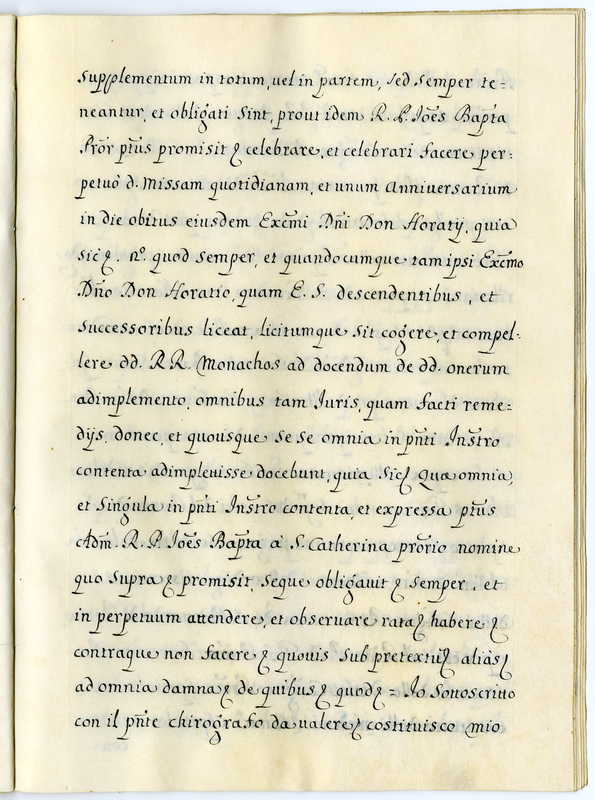 Supplementum in totum, uel in partem, sed semper te=
neantur, et obligati sint, prout idem R. P. Ioẽs Bapt̃a
Prõr pt̃us promisit & celebrare, et celebrari facere per=
petuò d. Missam quotidianam, et unum Anniuersarium
in die obitus eiusdem Excm̃i Dñi Don Horatij, quia
sic &. nº. quod semper, et quandocumque tam ipsi Excm̃o
Dño Don Horatio, quam E. S. descendentibus, et
successoribus liceat, licitumque sit cogere, et compel=
lere dd. RR. Monachos ad docendum de dd. onerum
adimplemento, omnibus tam Iuris, quam facti reme=
dijs, donec, et quousque se se omnia in pñti Instr̃o
contenta adimpleuisse docebunt, quia sic & Quæ omnia,
et singula in pñti Instr̃o contenta, et expressa pt̃us
Adm̃. R. P. Ioẽs Bapt̃a à S. Catherina prõrio nomine
quo supra & promisit, seque obligauit & semper, et
in perpetuum attendere, et obseruare rata & habere &
contraque non facere & quouis sub pretextu & aliàs &
ad omnia damna & de quibus & quod & = Io Sottoscritto
con il pñte chirografo da ualere & costituisco mio